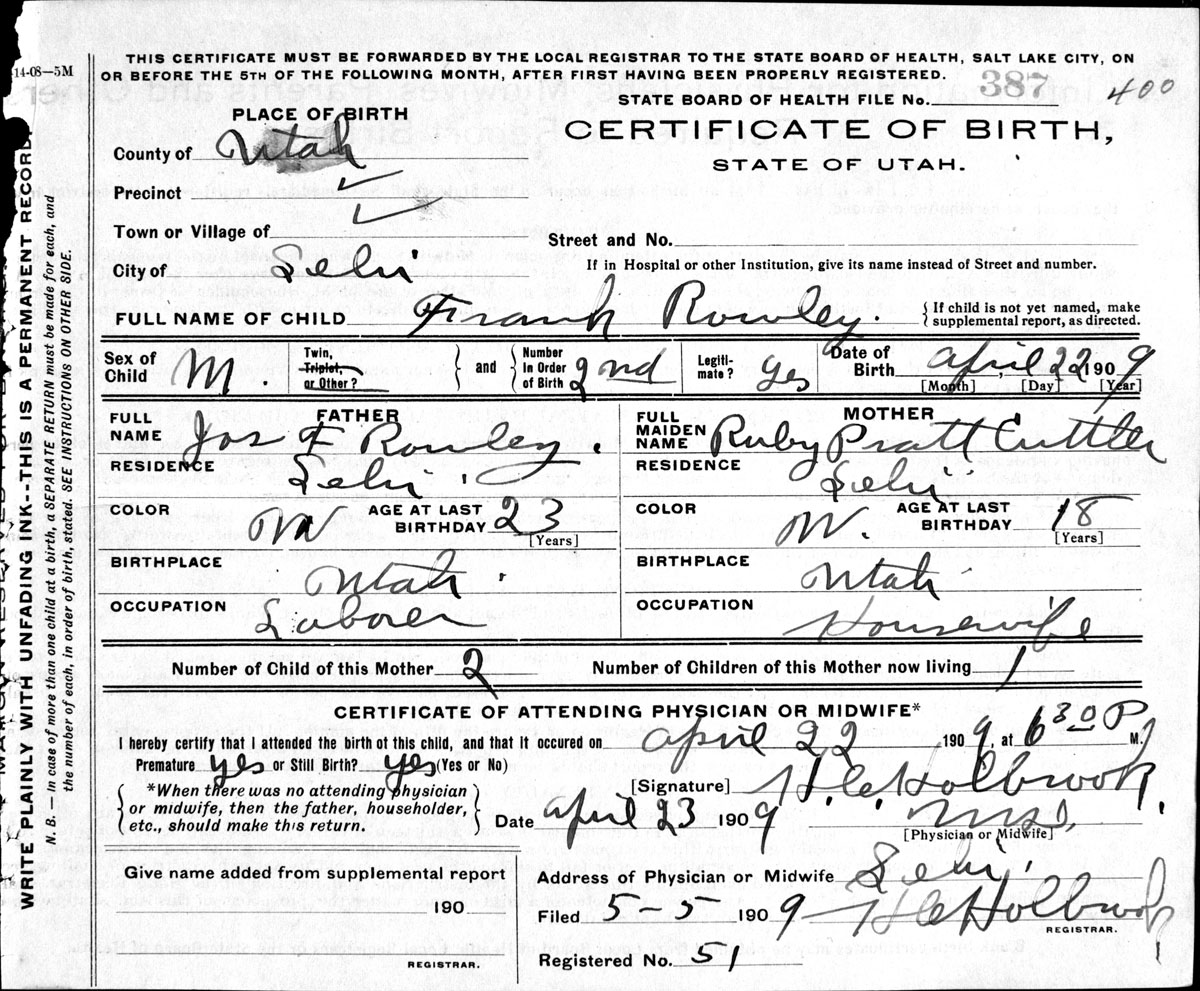 14-08—5M
THIS CERTIFICATE MUST BE FORWARDED BY THE LOCAL REGISTRAR TO THE STATE BOARD OF HEALTH, SALT LAKE CITY, ON
OR BEFORE THE 5TH OF THE FOLLOWING MONTH, AFTER FIRST HAVING BEEN PROPERLY REGISTERED.
STATE BOARD OF HEALTH FILE No. 387 400
PLACE OF BIRTH
CERTIFICATE OF BIRTH,
STATE OF UTAH.
County of Utah
Precinct
Town or Village of
Street and No.
City of Lehi
If in Hospital or other Institution, give its name instead of Street and number.
FULL NAME OF CHILD Frank Rowley. {If child is not yet named, make
supplemental report, as directed.
Sex of Child M. Twin, Triplet, or Other? } and { Number In Order of Birth 2nd Legiti-mate? yes Date of Birth April 22 1909
[Month] [Day] [Year]
FATHER
FULL NAME Jos F Rowley.
RESIDENCE Lehi.
COLOR W AGE AT LAST BIRTHDAY 23 [Years]
BIRTHPLACE Utah.
OCCUPATION Laborer
MOTHER
FULL MAIDEN NAME Ruby Pratt Cuttler
RESIDENCE Lehi
COLOR W. AGE AT LAST BIRTHDAY 18 [Years]
BIRTHPLACE Utah
OCCUPATION Housewife
Number of Child of this Mother 2 Number of Children of this Mother now living 1
CERTIFICATE OF ATTENDING PHYSICIAN OR MIDWIFE*
I hereby certify that I attended the birth of this child, and that it occured on April 22, 1909, at 6 30 P M.
Premature yes or Still Birth? yes (Yes or No)
[Signature] H.C. Holbrook.
{*When there was no attending physician
or midwife, then the father, householder,
etc., should make this return.}
Date April 23 1909
[Physician or Midwife]
Give name added from supplemental report
190
REGISTRAR.
Address of Physician or Midwife Lehi.
Filed 5 5 1909 H C Holbrook
REGISTRAR.
Registered No. 51
WRITE PLAINLY WITH UNFADING INK--THIS IS A PERMANENT RECORD
N. B.—In case of more than one child at a birth, a SEPARATE RETURN must be made for each, and
the number of each, in order of birth, stated. SEE INSTRUCTIONS ON OTHER SIDE.